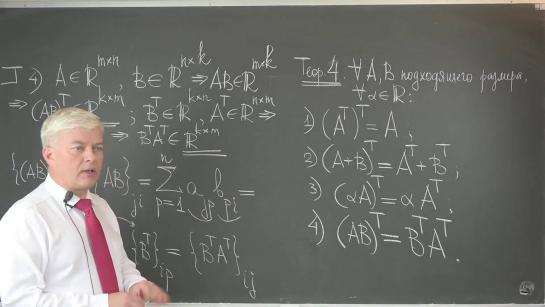 ⅃ 4) A ∈ ℝ^{m×n}, B ∈ ℝ^{n×k} ⇒ AB ∈ ℝ^{m×k}
⇒ (AB)^T ∈ ℝ^{k×m}; B^T ∈ ℝ^{k×n}, A^T ∈ ℝ^{n×m} ⇒
⇒ B^T A^T ∈ ℝ^{k×m}
{(AB AB}_{ji} = ∑_{p=1}^{n} a_{jp} b_{pi} =
{B^T}_{ip} = {B^T A^T}_{ij}
Теор. 4. ∀ A, B подходящего размера,
∀ α ∈ ℝ:
1) (A^T)^T = A,
2) (A+B)^T = A^T + B^T,
3) (αA)^T = α A^T;
4) (AB)^T = B^T A^T.